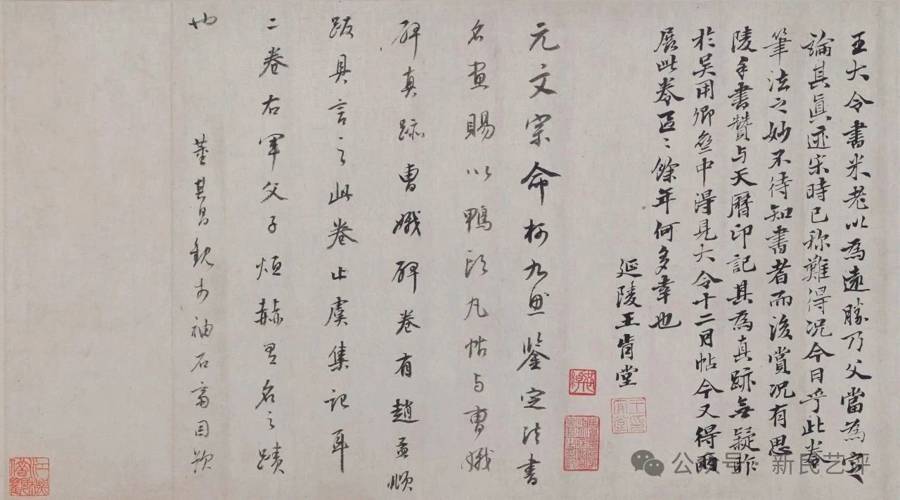 王大令書米老以為遠勝乃父當為定
論其真迹宋時已称難得况今日乎此卷
筆法之妙不待知書者而後賞况有思
陵手書贊与天曆印記其為真跡無疑昨
於吴用卿中得見大令十二月帖今又得
展此卷區〻餘年何多幸也
延陵王肯堂
元文宗命柯九思鑒定法書
名畫賜以鴨頭丸帖与曹娥
碑真跡曹娥碑卷有趙孟頫
跋具言之此卷止虞集記耳
二卷右軍父子烜赫有名之蹟
也
董其昌觀於袖石齋因題
公众号 · 新民艺评